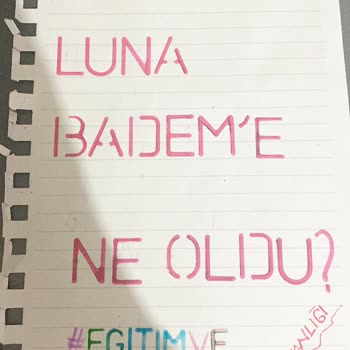 LUNA
BADEM'E
NE OLDU?
#EGITIMVE